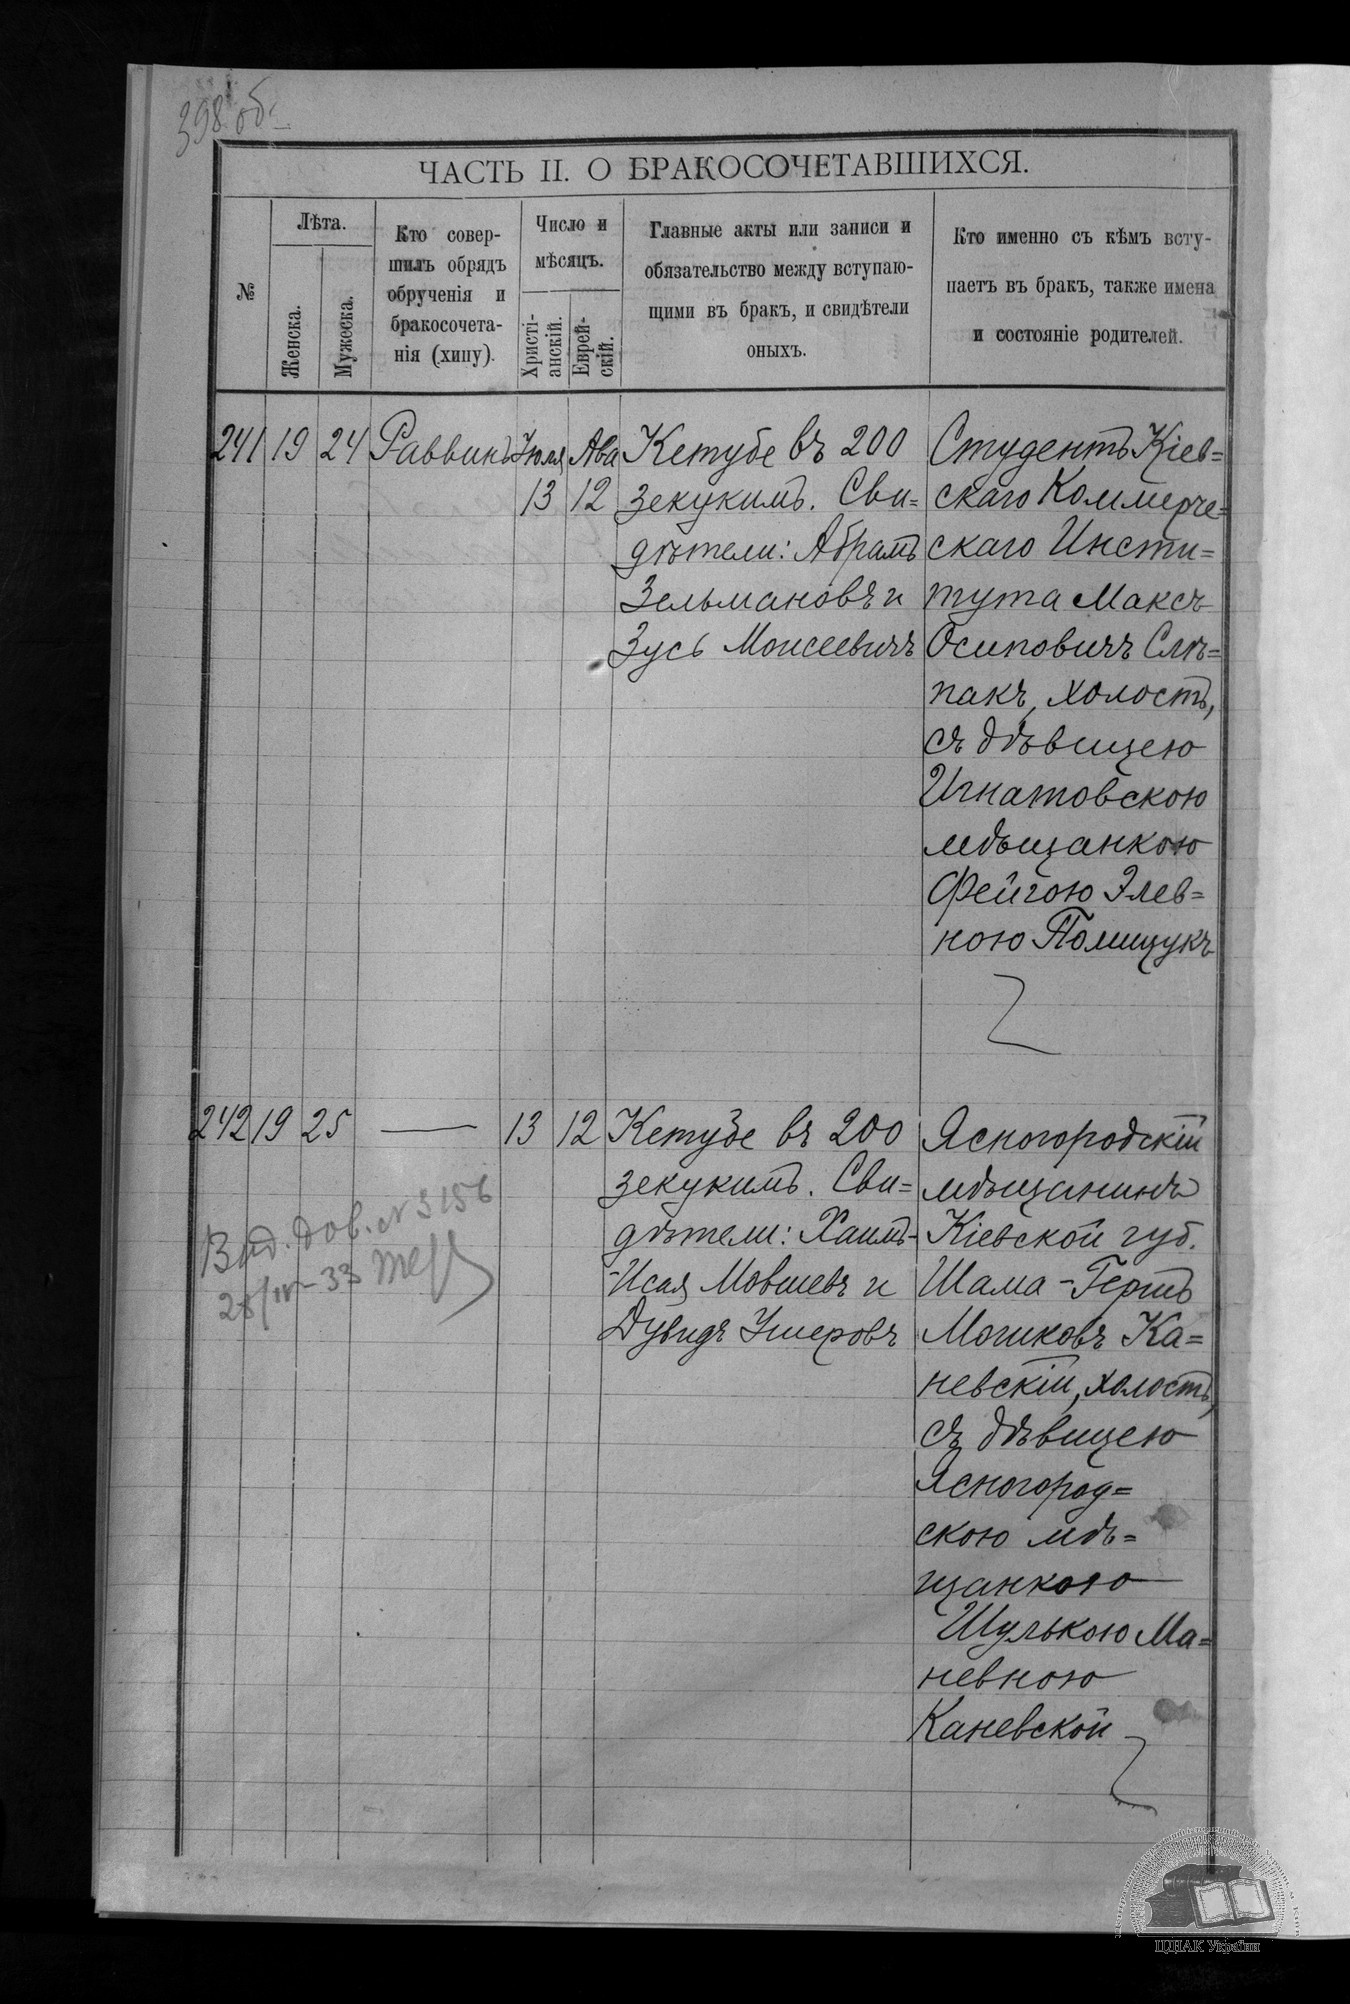 398 об.
ЧАСТЬ II. О БРАКОСОЧЕТАВШИХСЯ.
№
Лѣта.
Женска.
Мужеска.
Кто совер-
шилъ обрядъ
обрученія и
бракосочета-
нія (хипу).
Число и
мѣсяцъ.
Христі-
анскій.
Еврей-
скій.
Главные акты или записи и
обязательство между вступаю-
щими въ бракъ, и свидѣтели
оныхъ.
Кто именно съ кѣмъ всту-
паетъ въ бракъ, также имена
и состояніе родителей.
241 19 24 Раввинъ Іюля 13 Ава 12
Кетубе въ 200
зекукимъ. Сви=
дѣтели: Абрамъ
Зельмановъ и
Зусь Моисеевичъ
Студентъ Кіев=
скаго Коммерче=
скаго Инсти=
тута Максъ
Осиповичъ Слѣ=
пакъ, холостъ,
съ дѣвицею
Игнатовскою
мѣщанкою
Фейгою Элев=
ною Полищукъ
242 19 25 — 13 12
Кетубе въ 200
зекукимъ. Сви=
дѣтели: Хаимъ-
-Исая Мовшевъ и
Дувидъ Ушеровъ
Ясногородскій
мѣщанинъ
Кіевской губ.
Шама-Гершъ
Мошковъ Ка=
невскій, холостъ,
съ дѣвицею
Ясногород=
скою мѣ=
щанкою
Шулькою Ма=
невною
Каневской
Вид. дов. № 3156
28/IV-33
ЦДІАК України